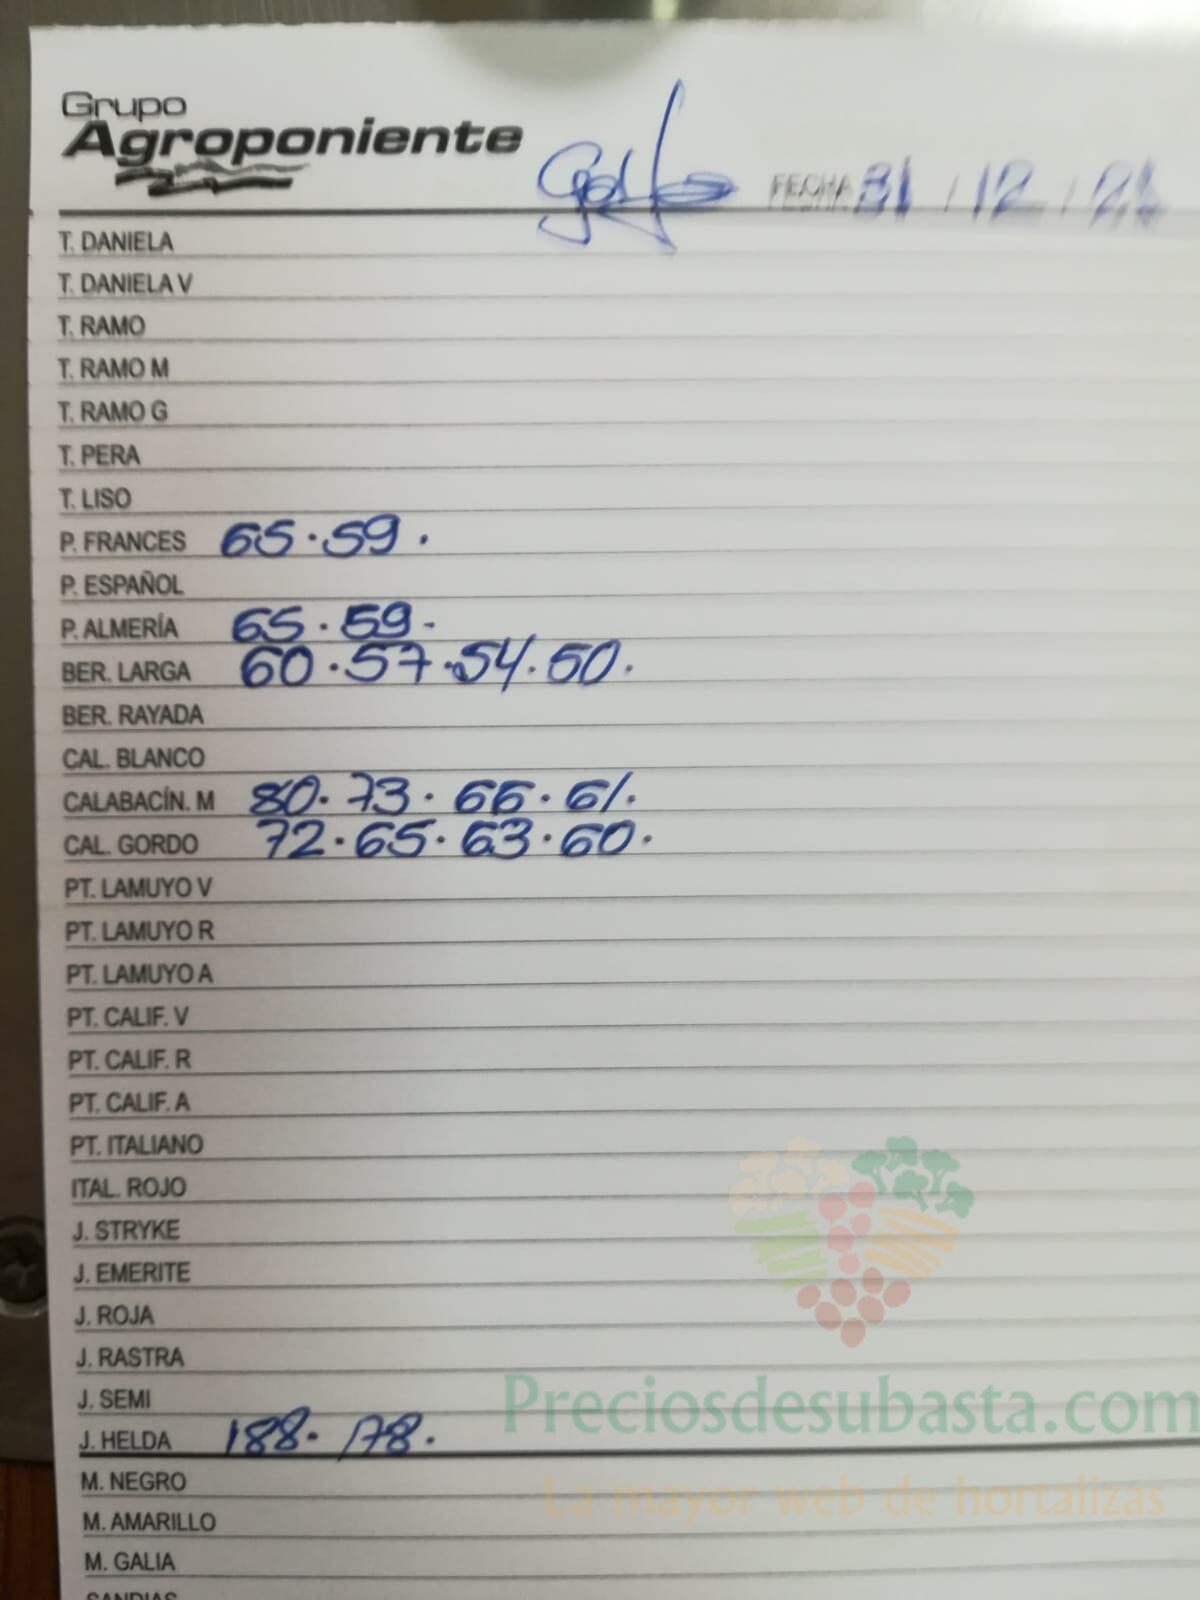 Grupo
Agroponiente
FECHA 31 / 12 / 21
T. DANIELA
T. DANIELA V
T. RAMO
T. RAMO M
T. RAMO G
T. PERA
T. LISO
P. FRANCES 65 · 59 ·
P. ESPAÑOL
P. ALMERÍA 65 · 59 -
BER. LARGA 60 · 57 · 54 · 50 ·
BER. RAYADA
CAL. BLANCO
CALABACÍN. M 80 · 73 · 66 · 61 ·
CAL. GORDO 72 · 65 · 63 · 60 ·
PT. LAMUYO V
PT. LAMUYO R
PT. LAMUYO A
PT. CALIF. V
PT. CALIF. R
PT. CALIF. A
PT. ITALIANO
ITAL. ROJO
J. STRYKE
J. EMERITE
J. ROJA
J. RASTRA
J. SEMI
Preciosdesubasta.com
J. HELDA 188 · 178 ·
M. NEGRO
La mayor web de hortalizas
M. AMARILLO
M. GALIA
SANDIAS